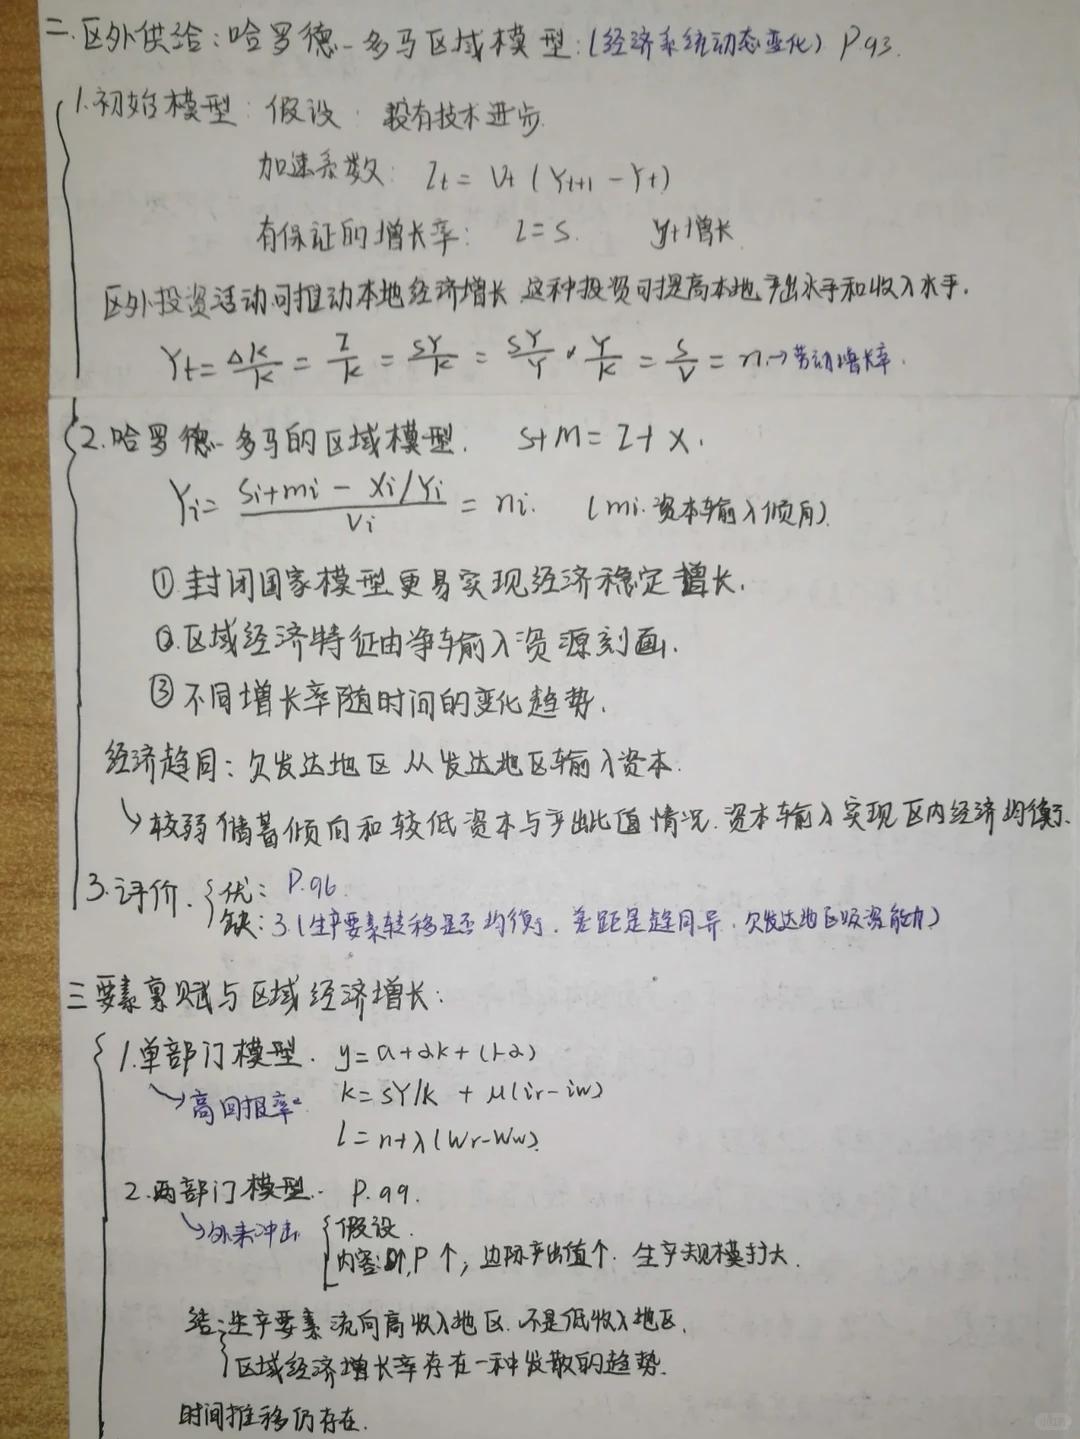 二.区外供给:哈罗德-多马区域模型:(经济系统动态变化) P.93.
1.初始模型:假设:没有技术进步.
加速系数: It = Vt (Yt+1 - Yt)
有保证的增长率: I = S. yt增长
区外投资活动可推动本地经济增长 这种投资可提高本地产出水平和收入水平.
Yt = ΔK/K = I/K = SY/K = SY/Y × Y/K = S/V = n. → 劳动增长率.
2.哈罗德-多马的区域模型. S+M = I+X.
Yi = (Si+mi - Xi/Yi)/Vi = ni. (mi.资本输入倾向).
①封闭国家模型更易实现经济稳定增长.
②.区域经济特征由净输入资源刻画.
③不同增长率随时间的变化趋势.
经济趋同:欠发达地区从发达地区输入资本.
↘较弱储蓄倾向和较低资本与产出比值情况.资本输入实现区内经济均衡.
3.评价. {优: P.96.
缺: 3.(生产要素转移是否均衡.差距是趋同异.欠发达地区吸资能力)
三 要素禀赋与区域经济增长:
1.单部门模型. y = a + αk + (1-α)
↘高回报率. k = SY/K + μ(ir-iw)
l = n+λ(Wr-Ww).
2.两部门模型. P.99.
↘外来冲击 {假设.
内容: ↑, P↑, 边际产出值个. 生产规模扩大.
结:生产要素流向高收入地区.不是低收入地区.
区域经济增长率存在一种发散的趋势.
时间推移仍存在.